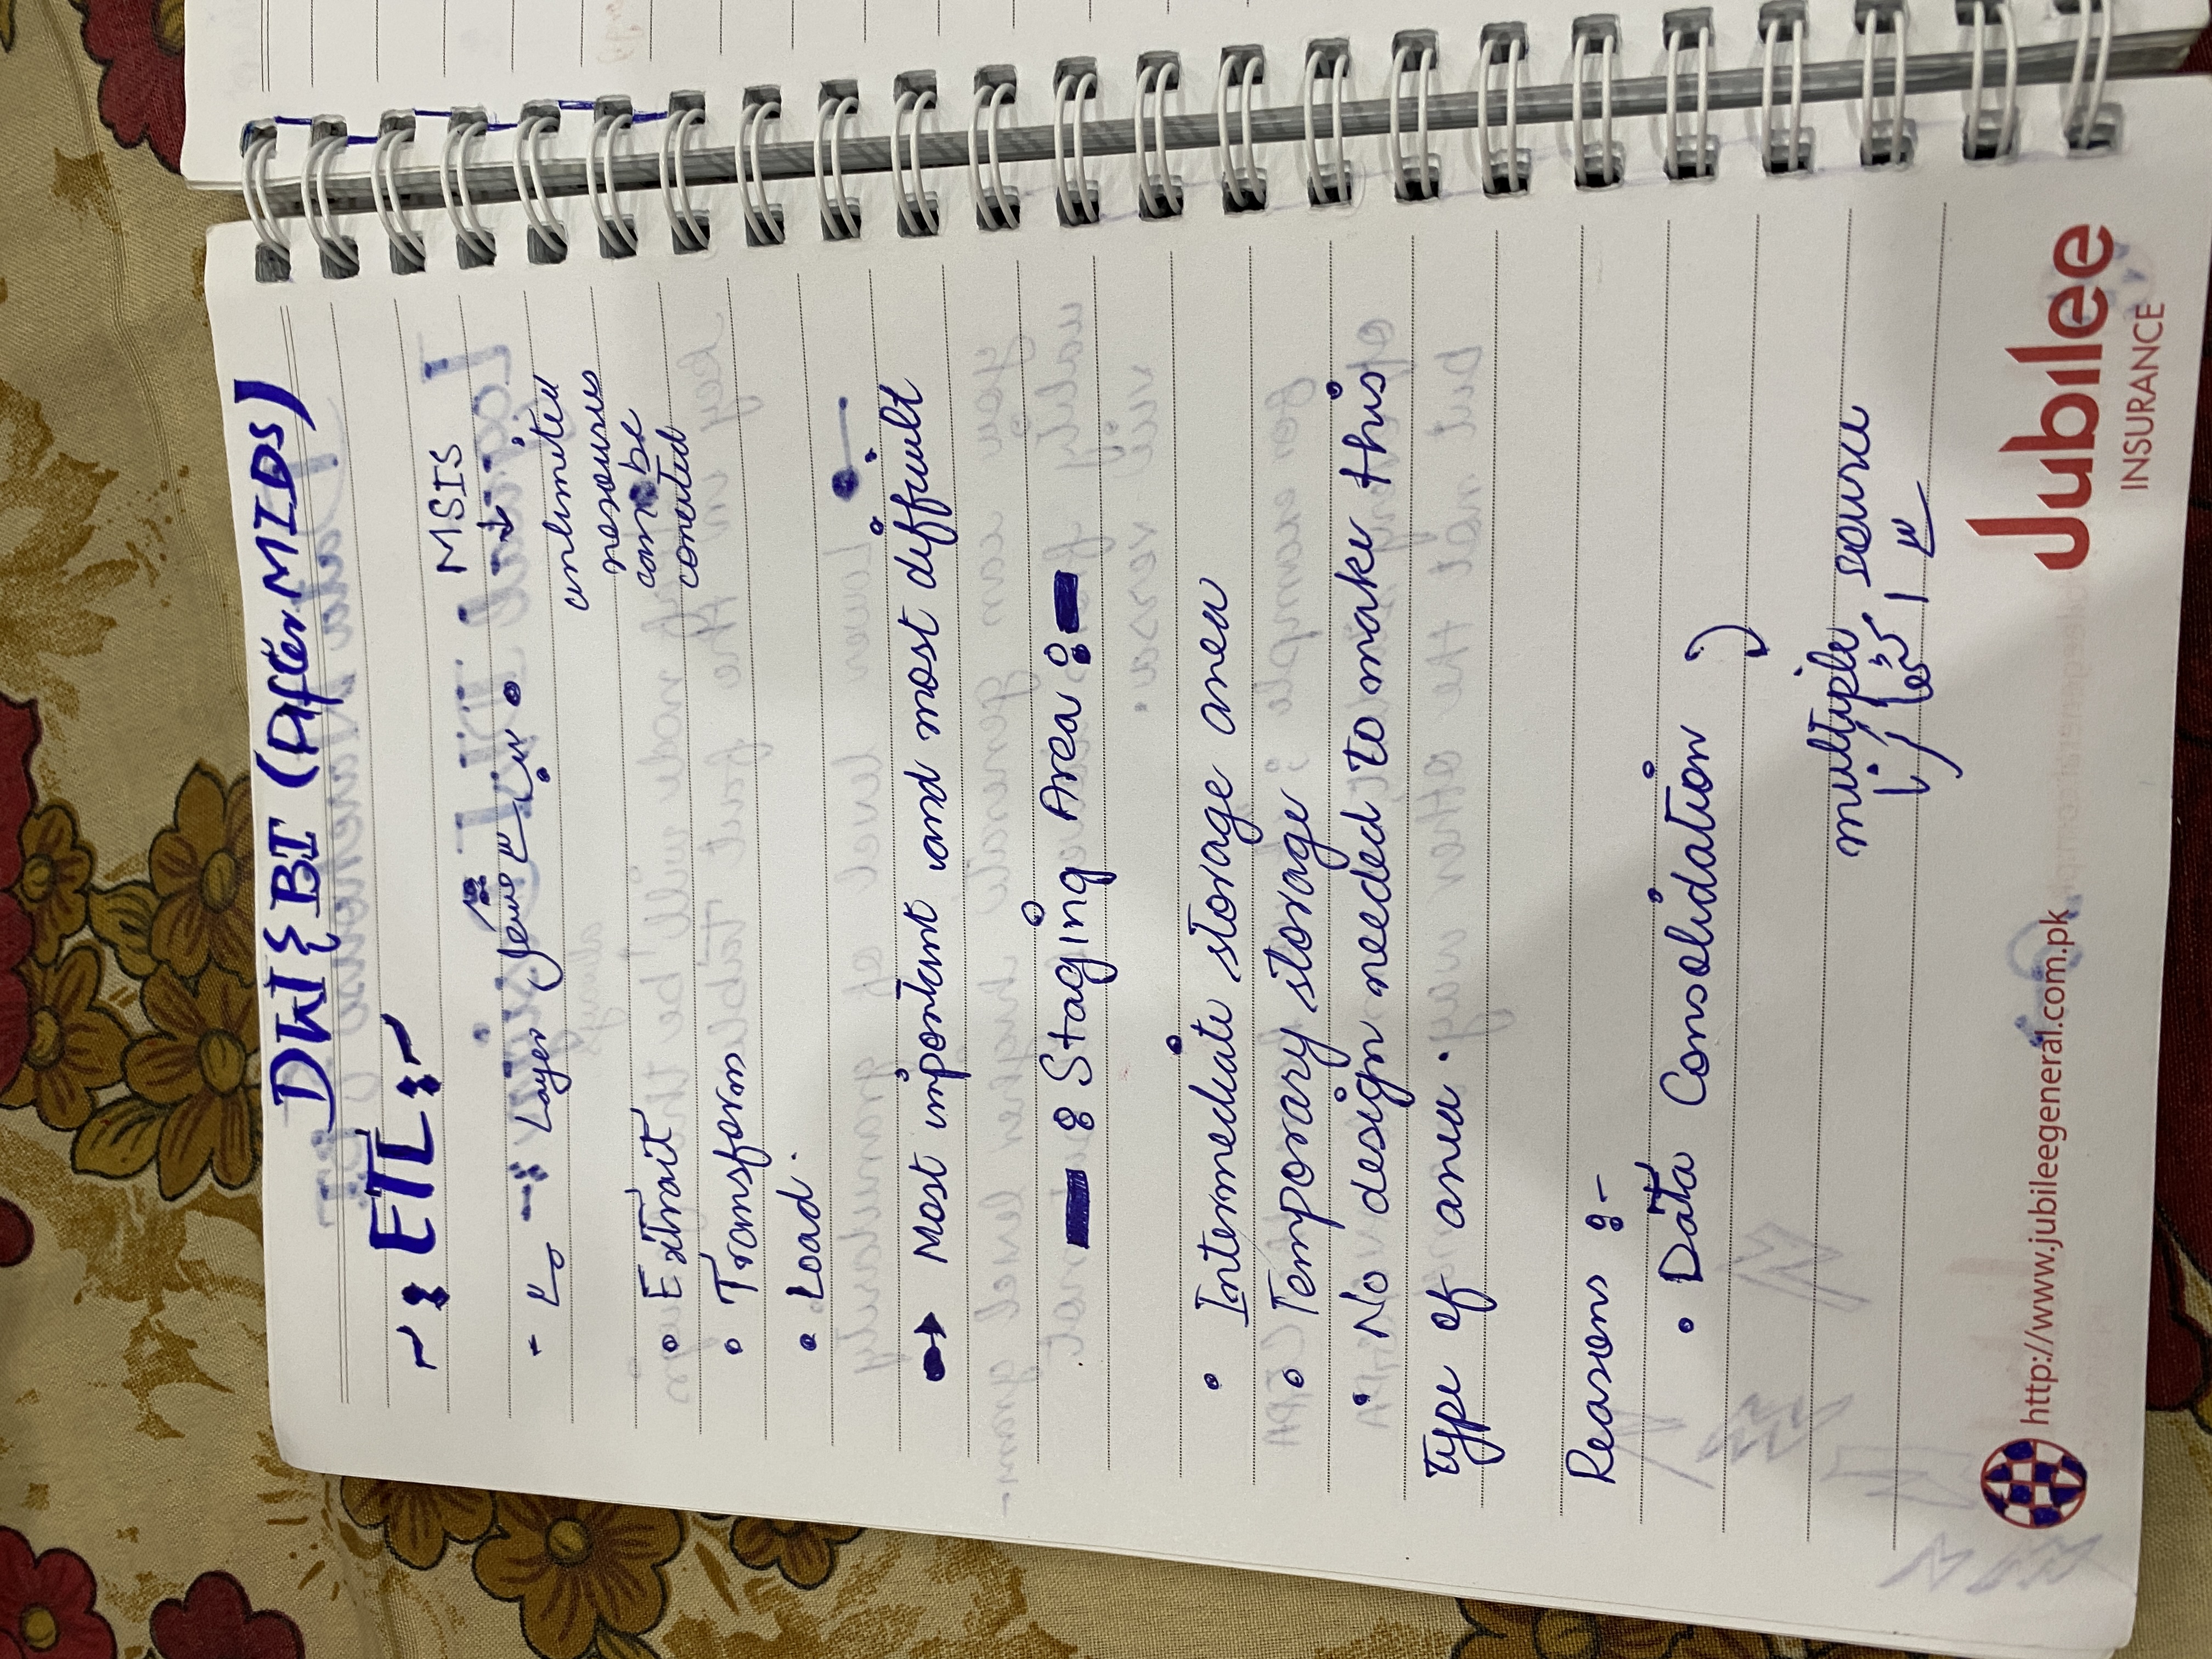 DW & BI (After MIDS)
~: ETL :~
MSIS
↓
• سب سے مشکل Layer :- ہے -
unlimited
resources
can be
conected
• Extract
• Transform
• Load.
→ Most important and most difficult
— : Staging Area : —
• Intermediate storage area
• Temporary storage
• No design needed to make this
type of area.
Reasons :-
• Data Consolidation
multiple source
سے اکٹھا کرنا
http://www.jubileegeneral.com.pk
Jubilee
INSURANCE